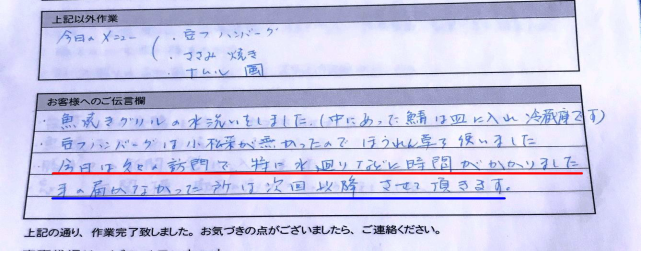 上記以外作業
今日のメニュー ・豆フハンバーグ
・ささみ焼き
・ナムル
お客様へのご伝言欄
・魚焼きグリルの水洗いをしました。(中にあった鯖は皿に入れ冷蔵庫です)
・豆フハンバーグは小松菜が無かったのでほうれん草を使いました
・今日は 訪問で、特に水廻りなどに時間がかかりました
手の届かなかった所は次回以降させて頂きます。
上記の通り、作業完了致しました。お気づきの点がございましたら、ご連絡ください。